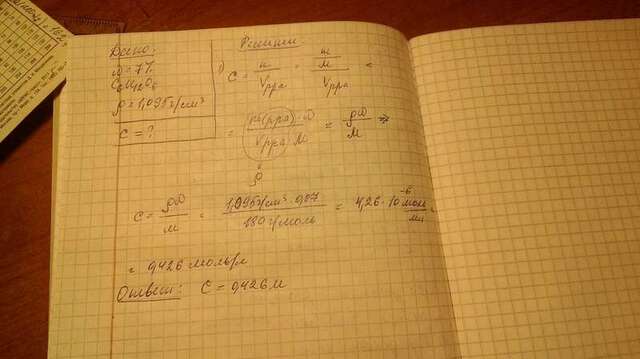 Дано:
ω = 7%
C₆H₁₂O₆
ρ = 1,095 г/см³
C = ?
Решение
1) C = n / Vрра = m/M / Vрра =
= m(рра)·ω / Vрра·M = ρω / M ⇒
ρ
C = ρω / M = 1,095 г/см³ · 0,07 / 180 г/моль = 4,26 · 10⁻⁶ моль / мл =
= 0,426 моль/л
Ответ: C = 0,426 М